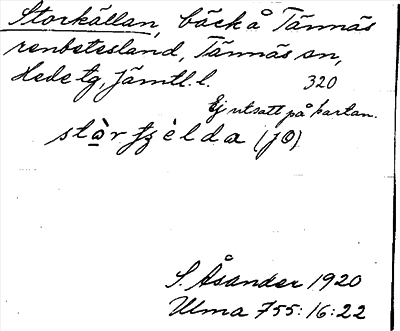 Storkällan, bäck å Tännäs
renbetesland, Tännäs sn,
Hede tg, Jämtl. l. 320
Ej utsatt på kartan.
(JO)
S. Åsander 1920
Ulma 755:16:22